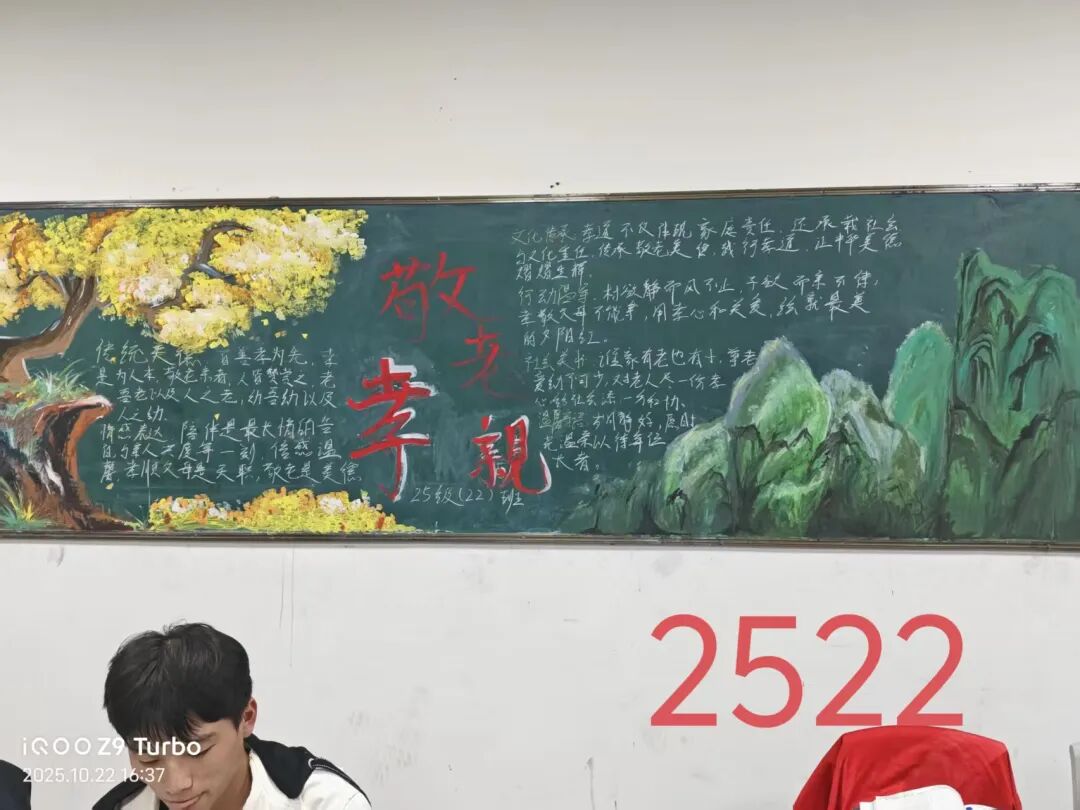 敬老
孝親
25级(22)班
传统美德 百善孝为先,孝
是为人本,敬老来者,人皆赞美之,老
吾老以及人之老,幼吾幼以及
人之幼。
情感表达 陪伴是最长情的告
白,与家人共度每一刻 传感温
馨 孝顺父母是天职,敬老是美德
文化传承 孝道不仅体现家庭责任,还承载社会
与文化责任,传承敬老美德,践行孝道,让中华美德
熠熠生辉。
行动温馨,树欲静而风不止,子欲养而亲不待,
孝敬父母不能等,用孝心和关爱,绘就最美
的夕阳红。
谁家有老也有小,尊老
爱幼不可少,对老人尽一份孝
心,给社会添一分和协。
温馨寄语 岁月静好,愿时
光温柔以待每位
长者。
2522
iQOO Z9 Turbo
2025.10.22 16:37